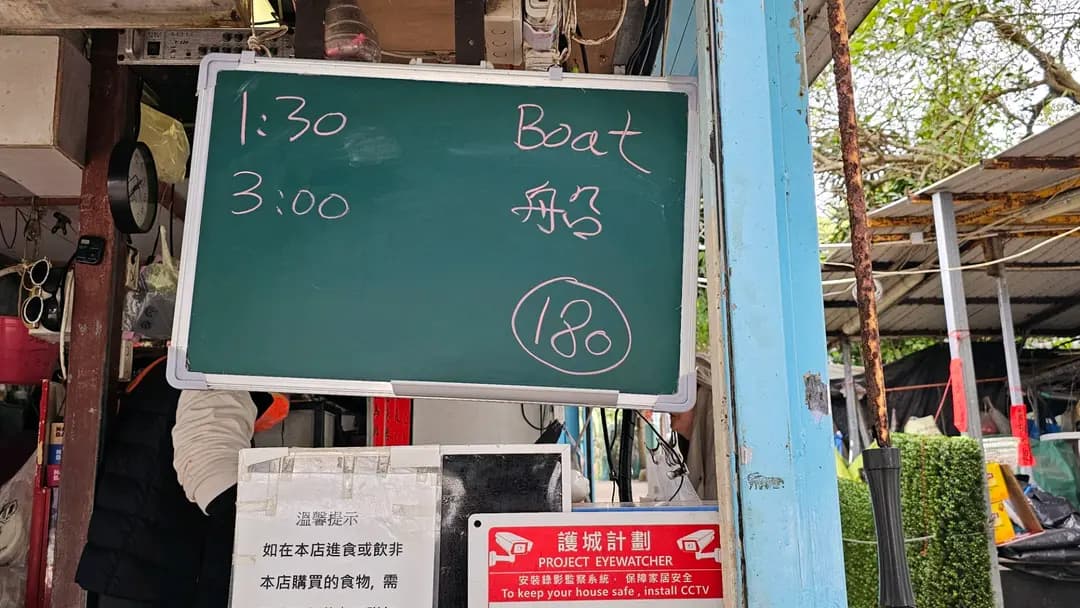 1:30
Boat
3:00
船
180
溫馨提示
如在本店進食或飲非
本店購買的食物, 需
護城計劃
PROJECT EYEWATCHER
安裝錄影監察系統· 保障家居安全
To keep your house safe , install CCTV